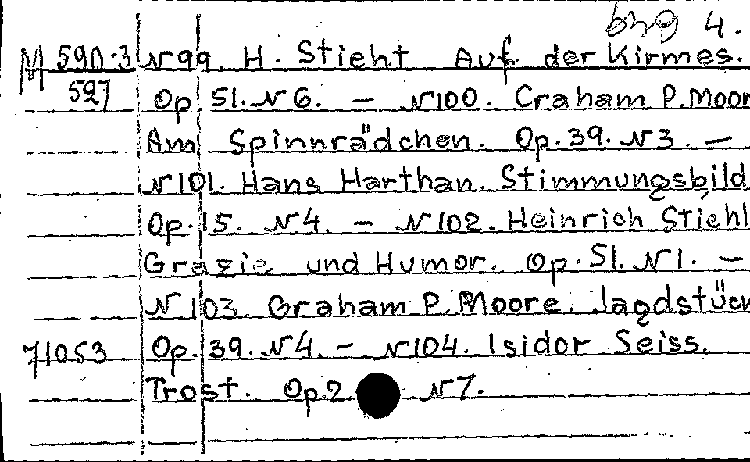 4.
М 590-3 N99. H. Stieht Auf der Kirmes.
597 Op. 51. N 6. — N100. Craham P. Moor
Am Spinnrädchen. Op. 39. N3. —
N101. Hans Harthan. Stimmungsbild
Op. 15. N4. — N102. Heinrich Stiehl
Grazie und Humor. Op. 51. N1. —
N103. Graham P. Moore. Jagdstück
71053 Op. 39. N4. — N104. Isidor Seiss.
Trost. Op. 2 N7.